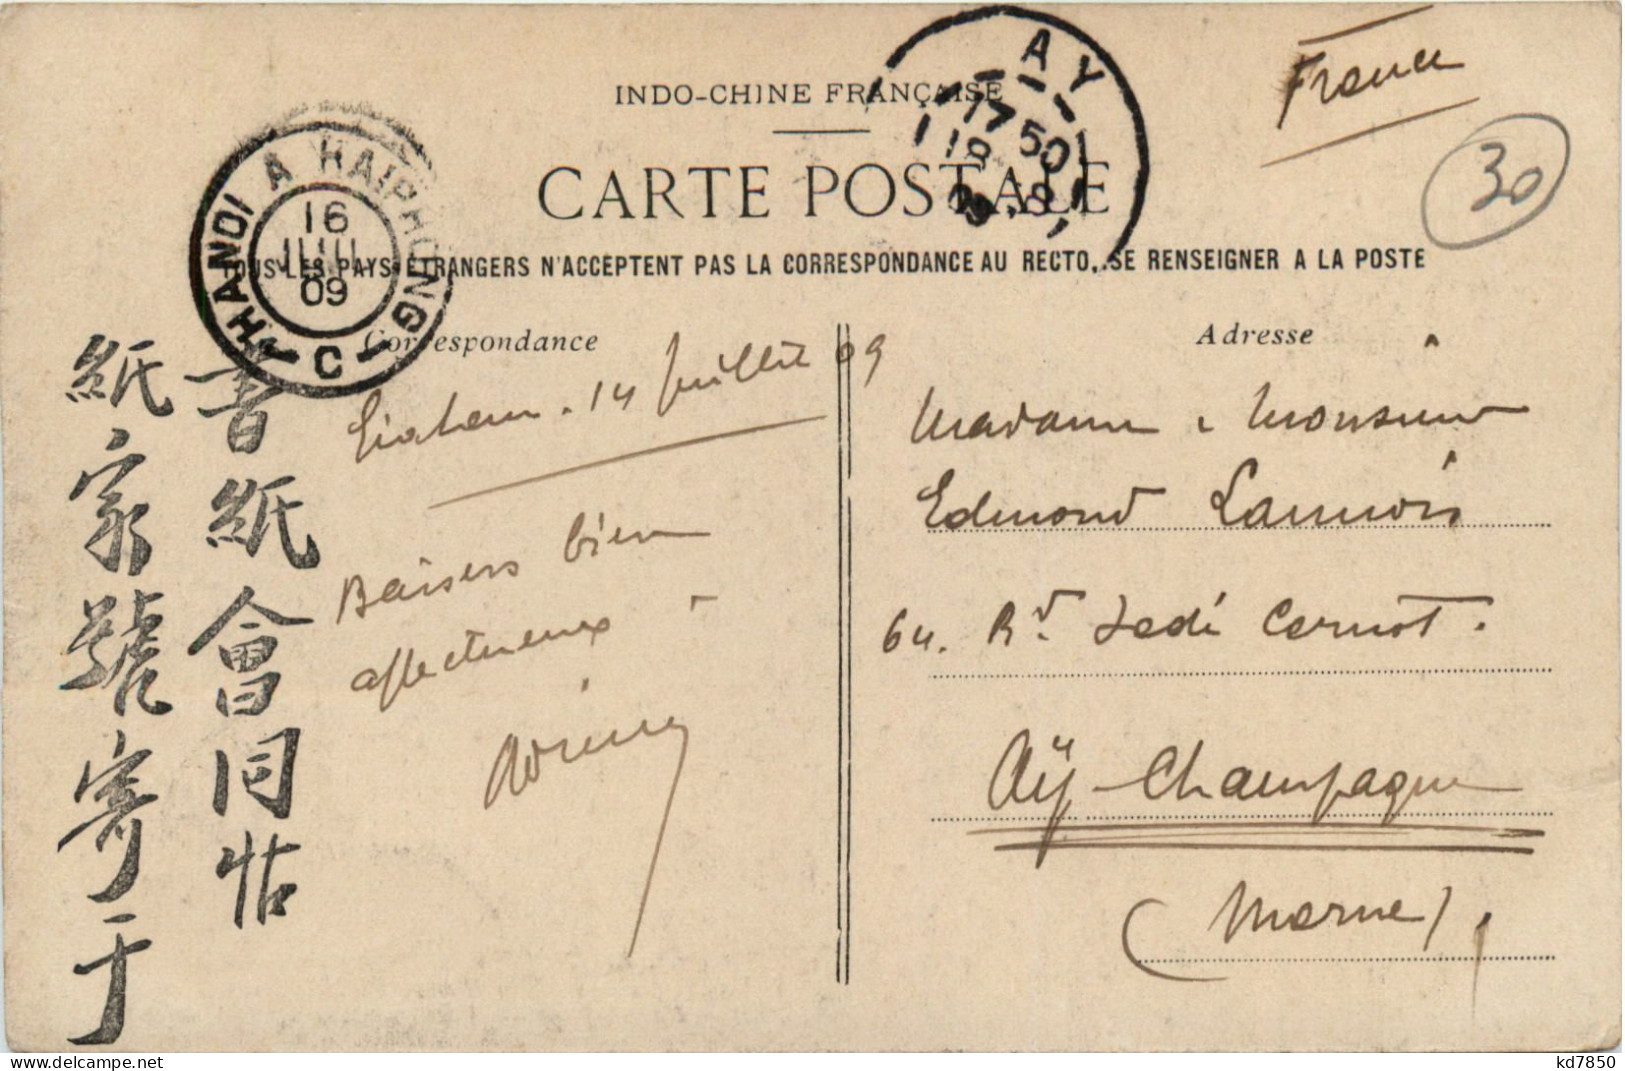 INDO-CHINE FRANÇAISE
CARTE POSTALE
TOUS LES PAYS ÉTRANGERS N'ACCEPTENT PAS LA CORRESPONDANCE AU RECTO, SE RENSEIGNER A LA POSTE
HANOI A HAIPHONG
16
JUIL
09
C
AY
17 50
18
09
France
30
Correspondance
14 Juillet 09
Baisers bien
affectueux
書紙會同
紙家號寄于
Adresse
Madame & Monsieur
Edmond Lannois
64. Bd. Sadi Carnot.
Aÿ-Champagne
(Marne).
kd7850